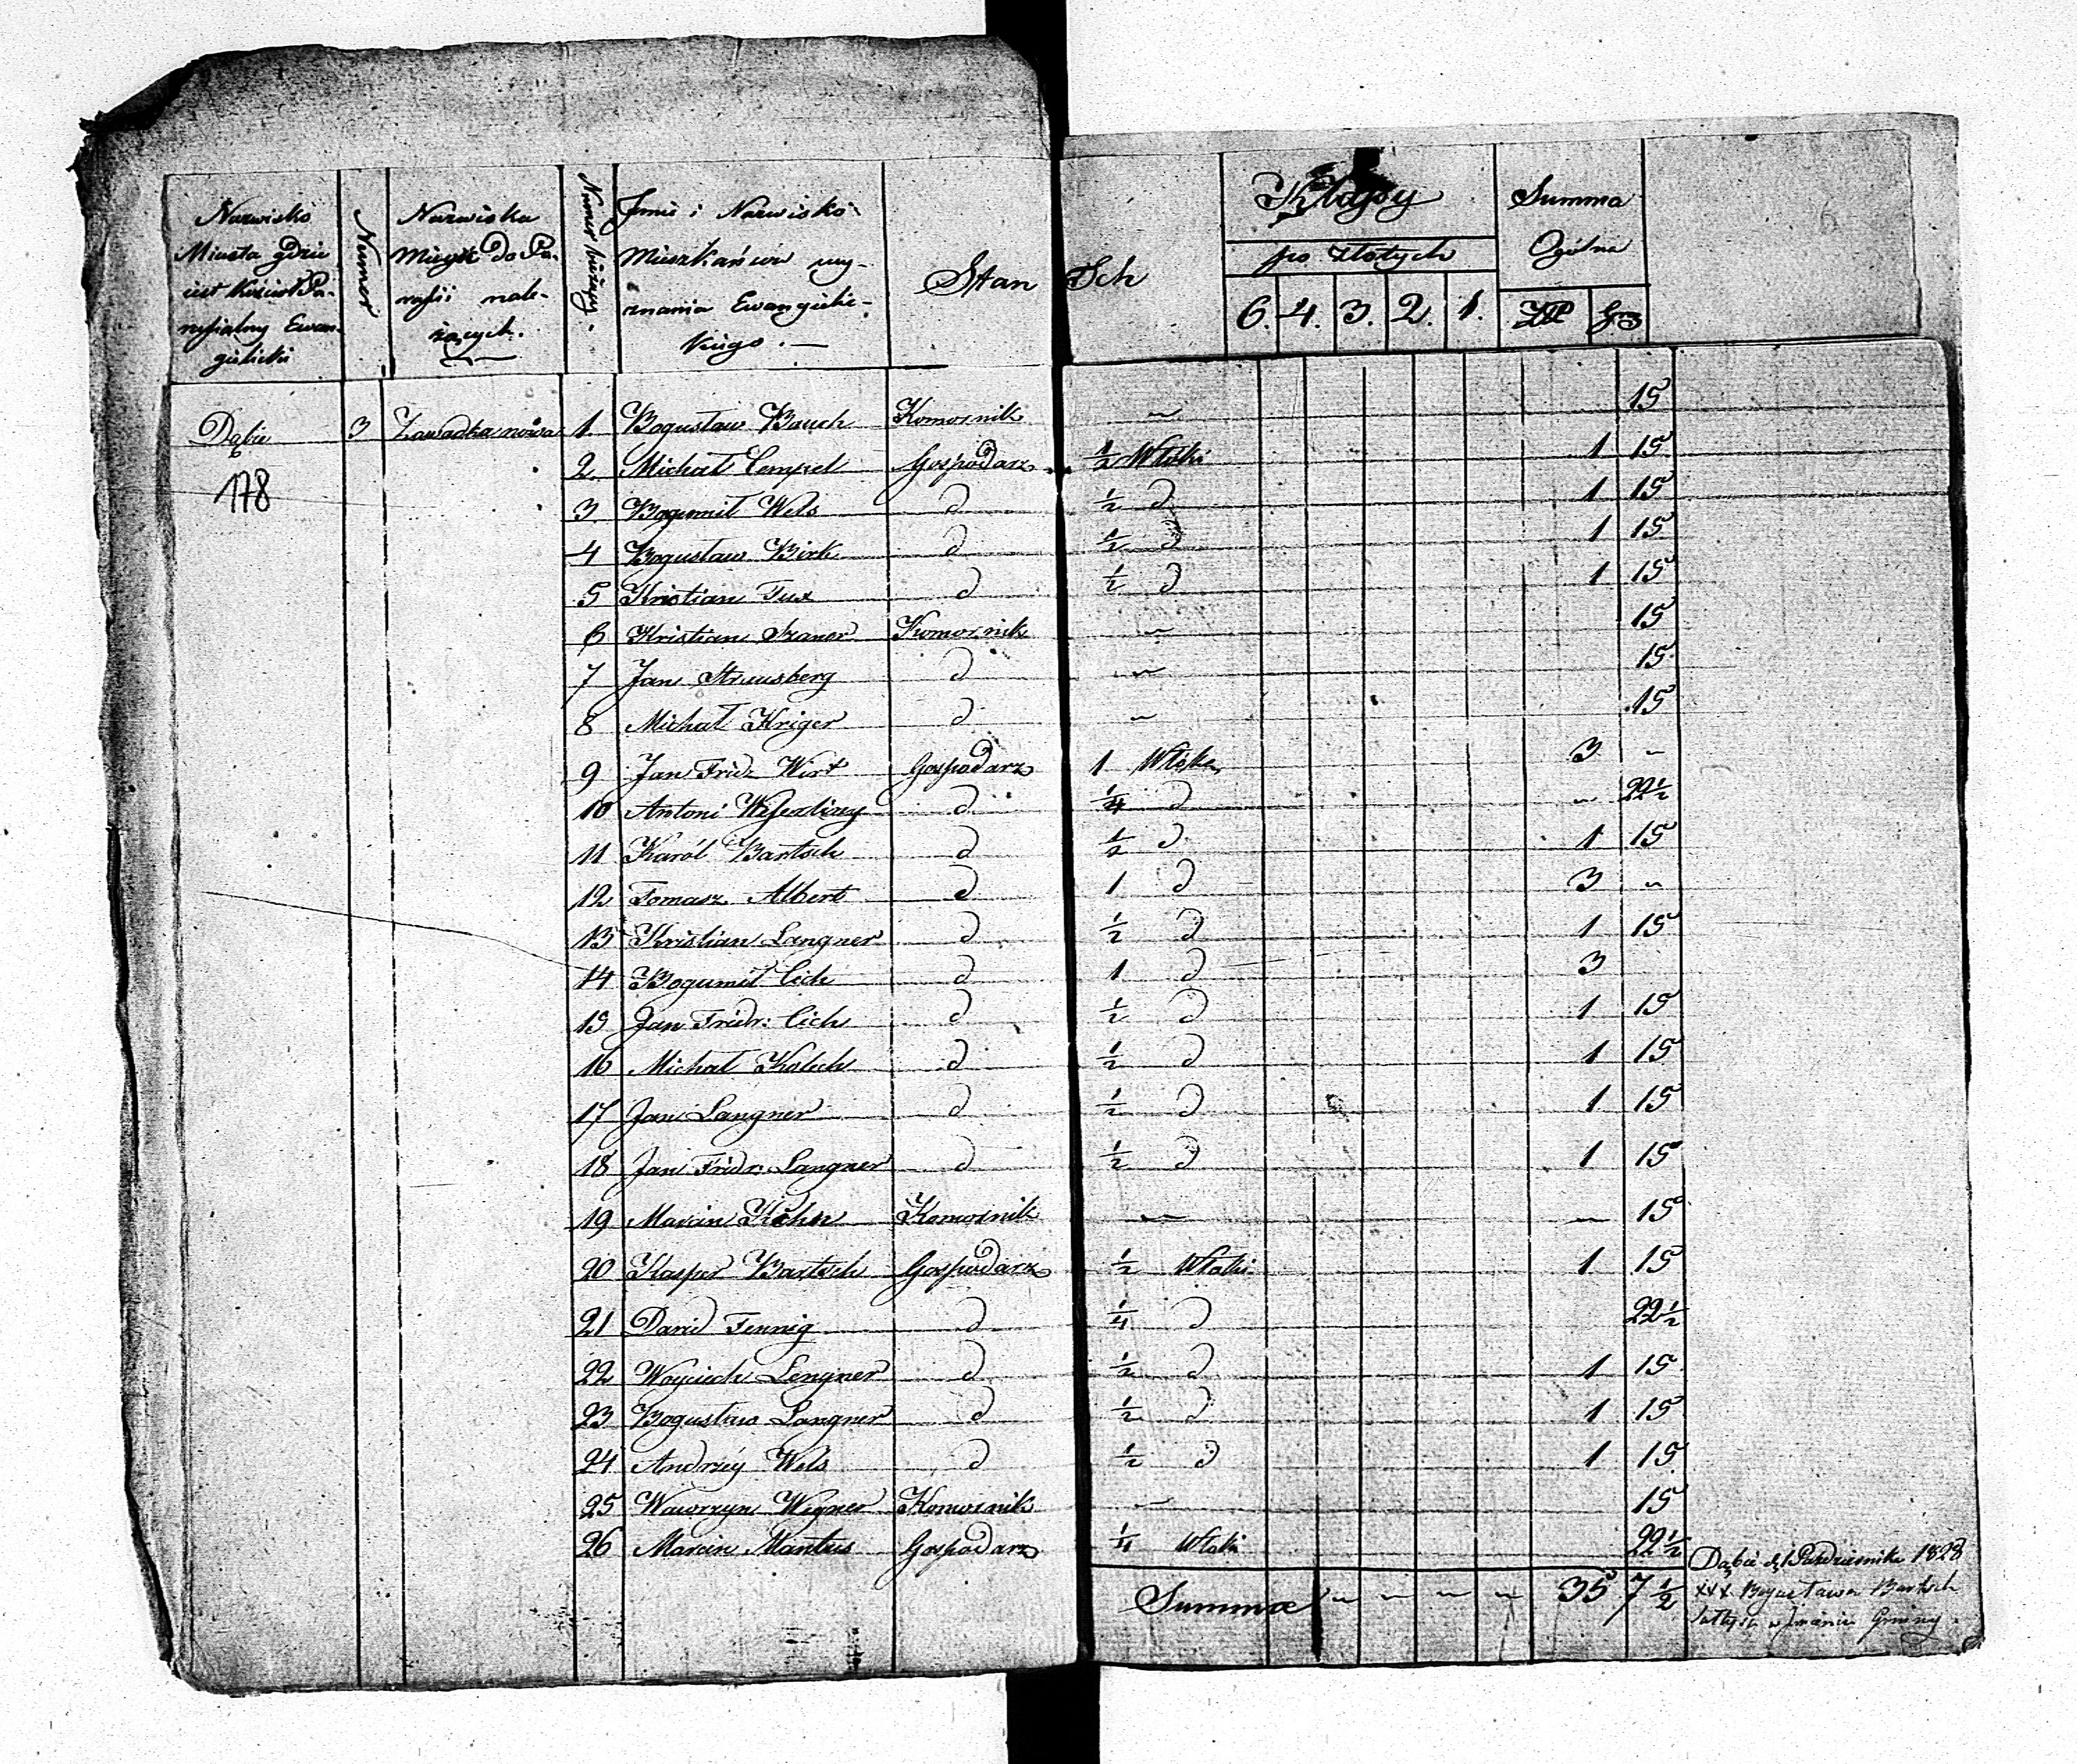 Nazwisko
Miasta gdzie
jest Kościoł Pa-
rafialny Ewan-
gielicki
Numer
Nazwiska
Mieysc do Pa-
rafii nale-
żących.
Numer bieżący.
Jmie i Nazwisko
Mieszkańców wy-
znania Ewangielic-
kiego.
Stan
Sch
Klassy
po złotych
6. 4. 3. 2. 1.
Summa
Ogólna
Złp Gr
Dąbie 3 Zawadka nowa 1. Bogusław Bauch Komornik ~ 15
178
2. Michał Tempel Gospodarz ½ Włoki 1 15
3 Bogumił Wels d ½ d 1 15
4 Bogusław Birk d ½ d 1 15
5 Kristian Fux d ½ d 1 15
6 Kristian Szaner Komornik ~ 15
7 Jan Strausberg d ~ 15
8 Michał Kriger d ~ 15
9 Jan Fridr Wirt Gospodarz 1 Włoka 3 ~
10 Antoni d ¼ d ~ 22½
11 Karól Bartsch d ½ d 1 15
12 Tomasz Albert d 1 d 3 ~
13 Kristian Langner d ½ d 1 15
14 Bogumił Cich d 1 d 3
15 Jan Fridr: Cich d ½ d 1 15
16 Michał d ½ d 1 15
17 Jan Langner d ½ d 1 15
18 Jan Fridr: Langner d ½ d 1 15
19 Marcin Köhn Komornik ~ ~ 15
20 Kasper Bartsch Gospodarz ½ Włoki 1 15
21 David Fennig d ¼ d 22½
22 Woyciech Lengner d ½ d 1 15
23 Bogusław Langner d ½ d 1 15
24 Andrzéy Wels d ½ d 1 15
25 Wawrzyn Wegner Komornik ~ 15
26 Marcin Manteis Gospodarz ¼ Włoki 22½
Summa ~ ~ ~ ~ 35 7½
Dąbie d. 1 Października 1828
XXX Bogusława Bartsch
Sołtysa w Jmieniu Gminy.